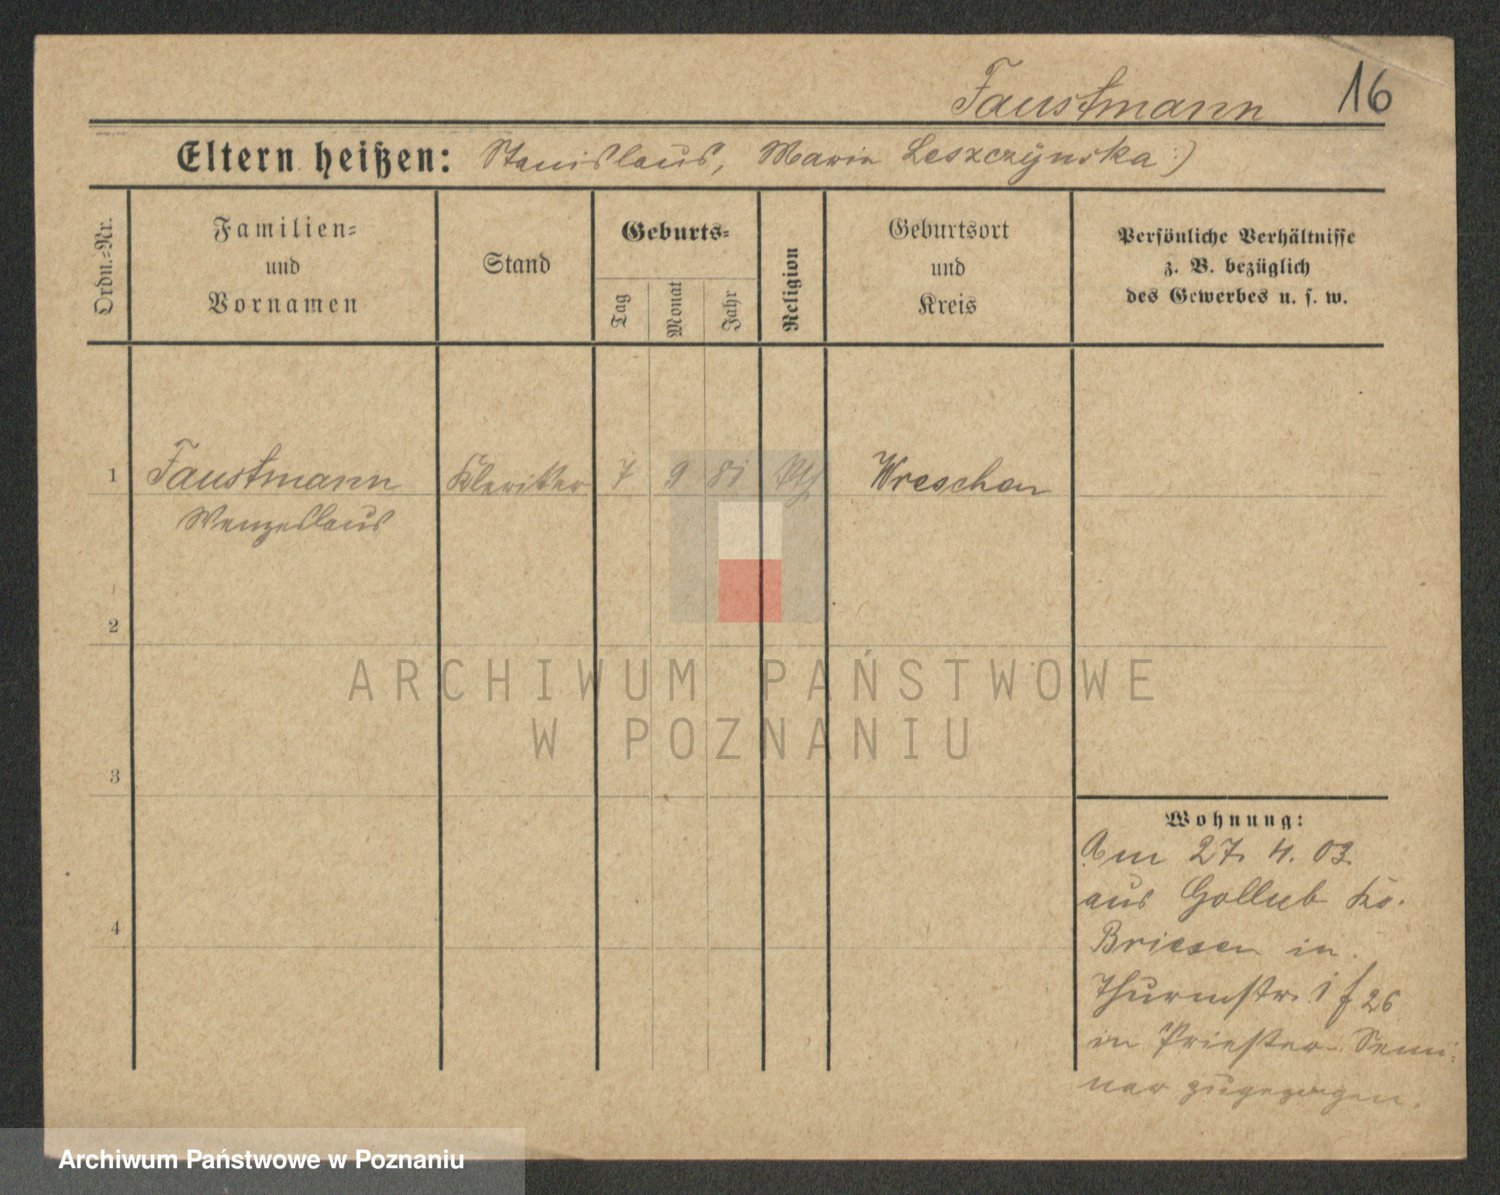 Faustmann 16
Eltern heißen: Stanislaus, Maria Leszczÿnska :)
Ordn.-Nr.
Familien-
und
Vornamen
Stand
Geburts-
Tag
Monat
Jahr
Religion
Geburtsort
und
Kreis
Persönliche Verhältnisse
z. B. bezüglich
des Gewerbes u. s. w.
1 Faustmann Kleriker 7 9 81 Wreschen
Wenzeslaus
2
3
4
Wohnung:
Am 27. 4. 03
aus Gollub Kr.
Briesen in
Thurmstr. 1 f 26
in Priester-Semi-
nar zugezogen.
ARCHIWUM PAŃSTWOWE
W POZNANIU
Archiwum Państwowe w Poznaniu